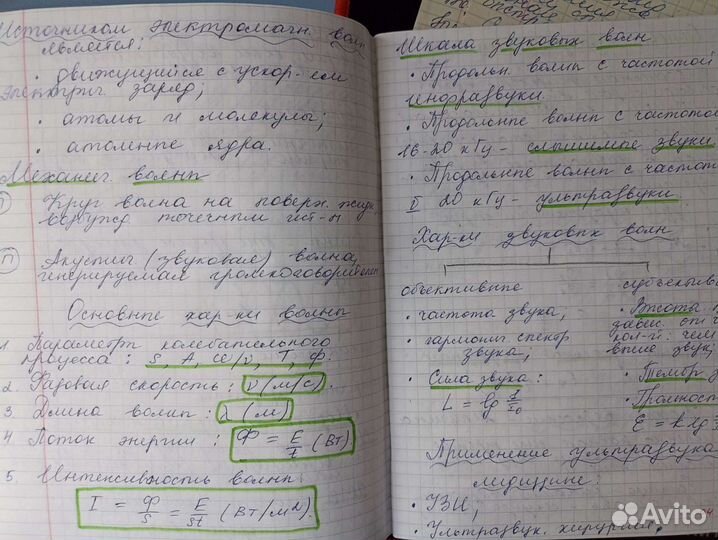 Источником электромагн. волн
является:
• движущийся с ускор-ем
электрич. заряд;
• атомы и молекулы;
• атомные ядра.
Механич. волны
Круг волна на поверх. жидк.
возбужд точечным ист-м
П
Акустич (звуковая) волна,
генерируемая громкоговорителем
Основные хар-ки волны
1 Параметры колебательного
процесса: s, A, ω/ν, T, φ.
2. Фазовая скорость: v (м/с).
3 Длина волны: λ (м)
4 Поток энергии: Ф = E/t (Вт)
5. Интенсивность волны:
I = Ф/s = E/st (Вт/м2).
Шкала звуковых волн
• Продольн. волны с частотой
инфразвуки.
• Продольные волны с частотой
16-20 кГц - слышимые звуки
• Продольные волны с частот
20 кГц - ультразвуки.
Хар-ки звуковых волн
объективные
• частота звука,
• гармонич спектр
звука,
• Сила звука:
L = lg I/I0
субъектив
• Высота
завис. от
кол-й: чем
выше звук,
• Тембр
• Громкост
E = k lg
Применение ультразвука
медицине:
• УЗИ,
• Ультразвук. хирургия.
Avito